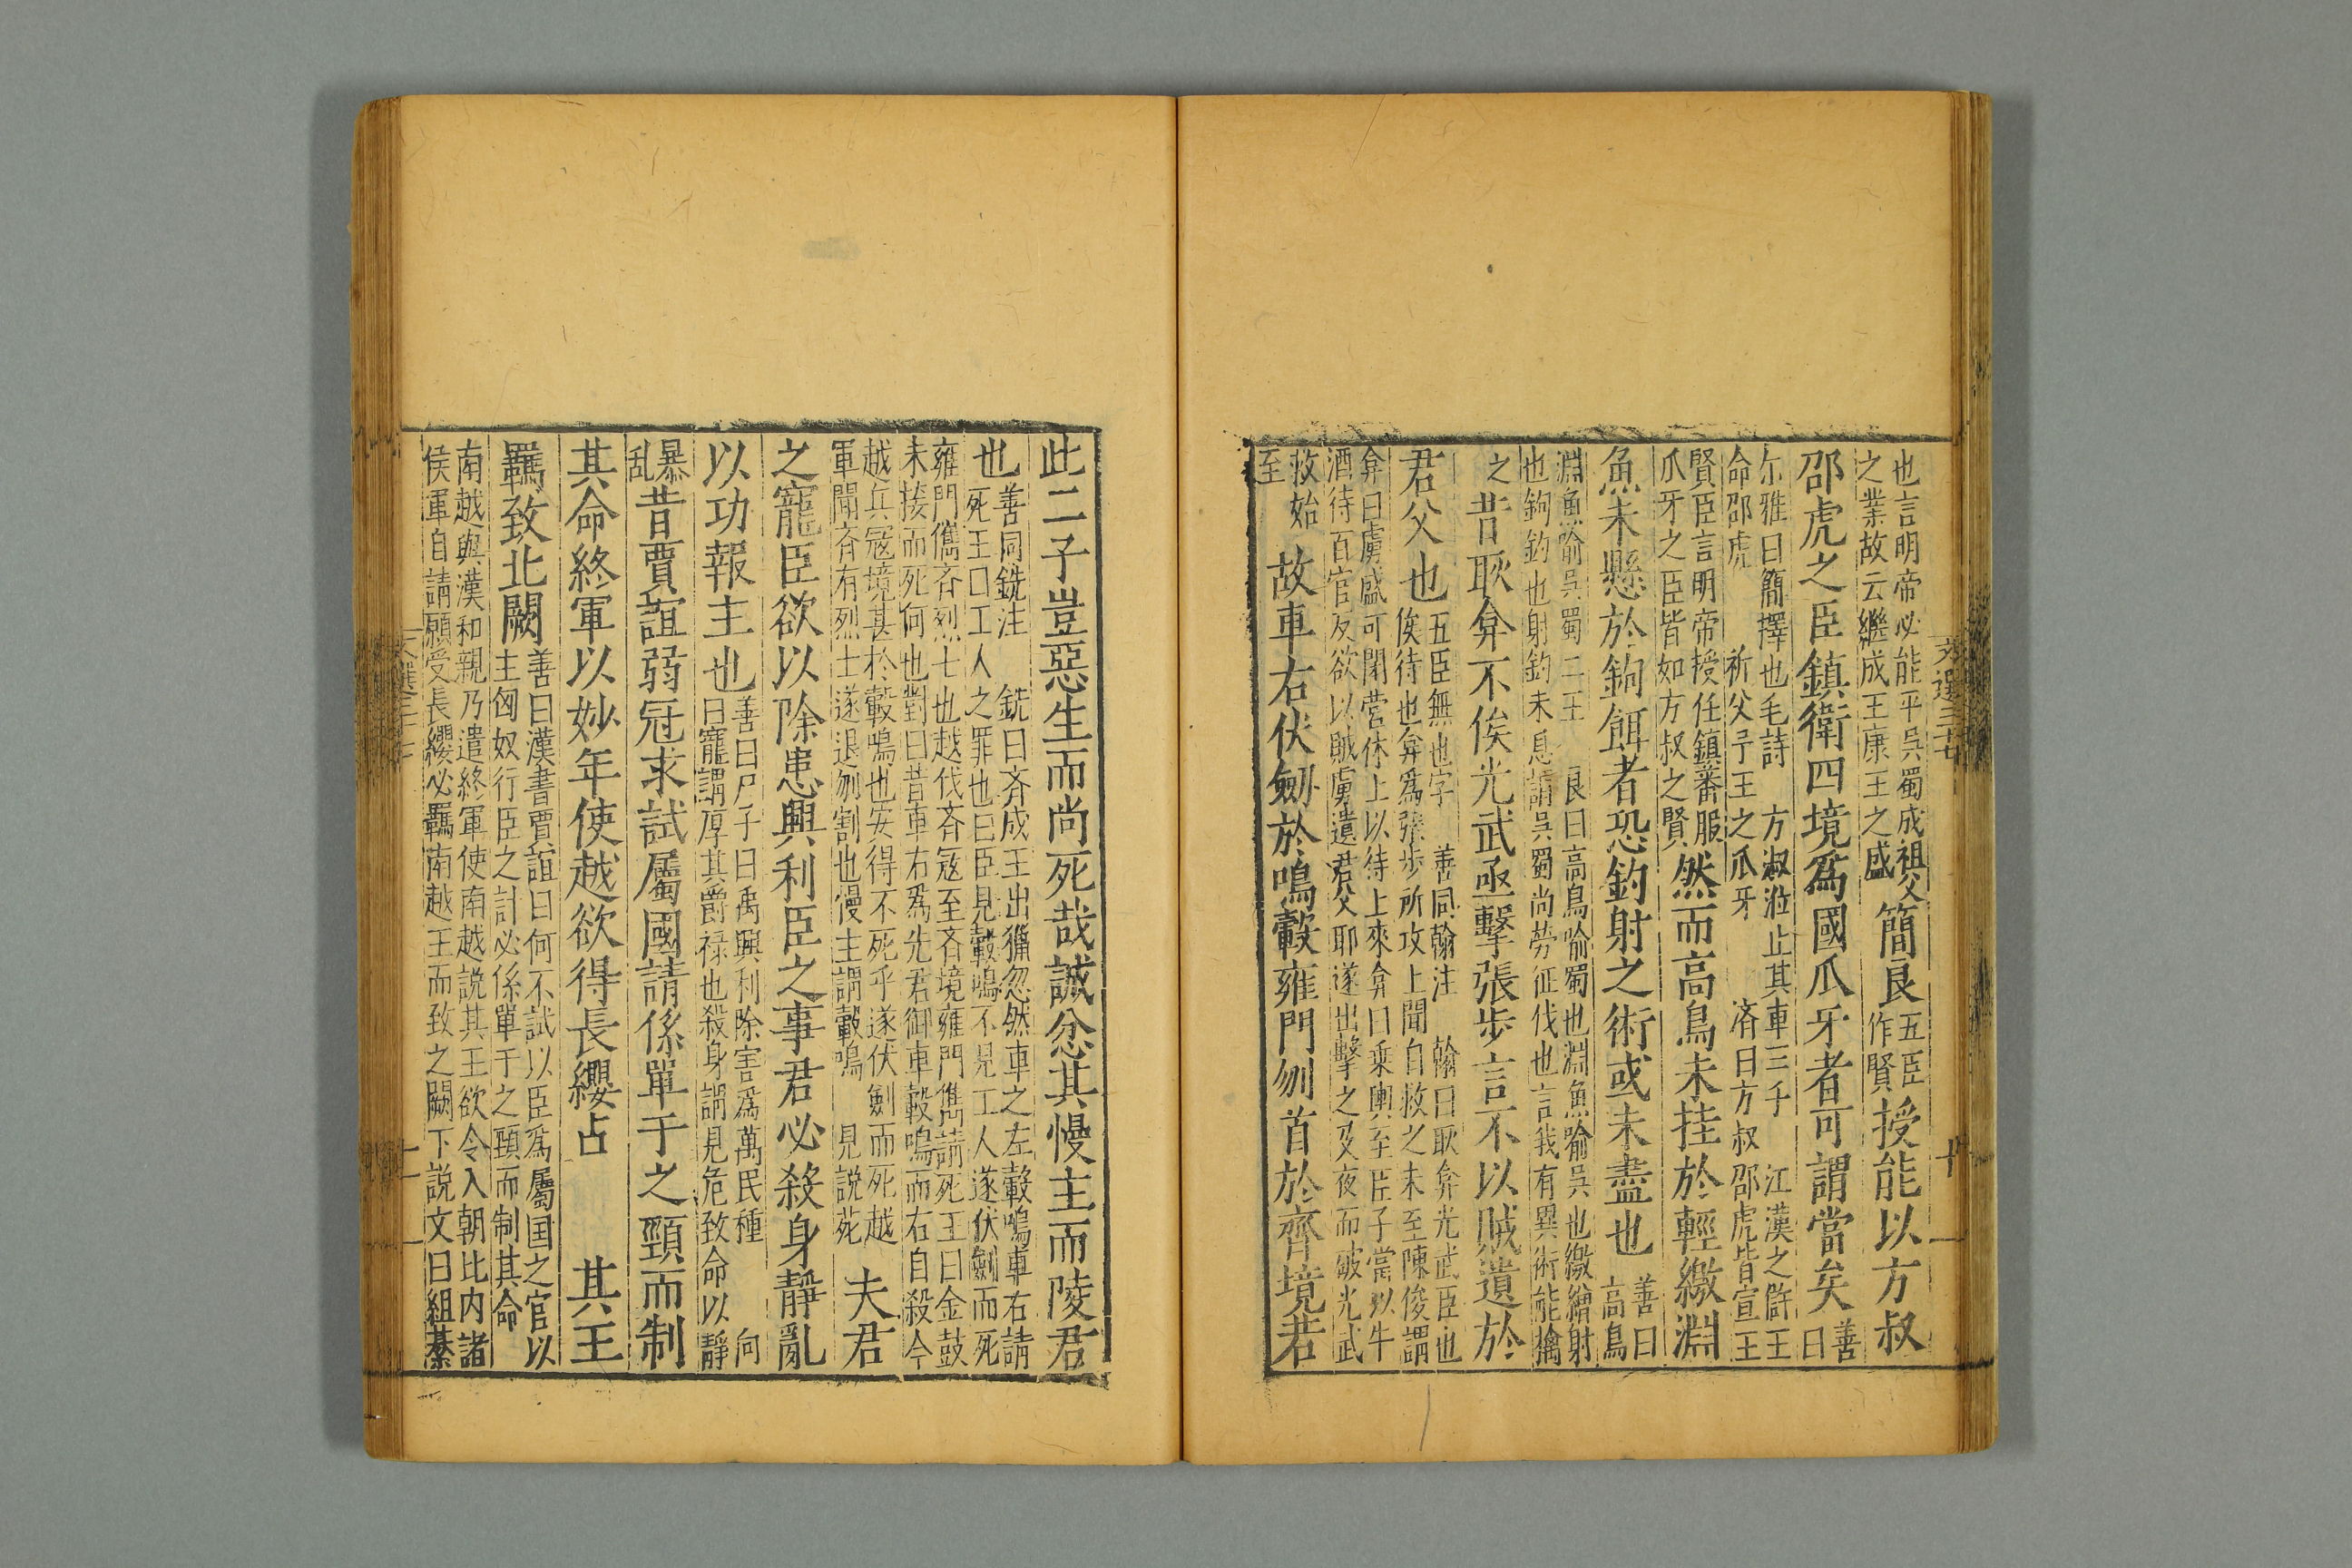 也言明帝必能平吳蜀成祖父
之業故云繼成王康王之盛
簡良
五臣
作賢
授能以方叔
邵虎之臣鎮衛四境為國爪牙者可謂當矣
善
曰
尓雅曰簡擇也毛詩 方叔涖止其車三千 江漢之滸王
命邵虎 祈父予王之爪牙 濟曰方叔邵虎皆宣王
賢臣言明帝授任鎮蕃服
爪牙之臣皆如方叔之賢
然而高鳥未挂於輕繳淵
魚未懸於鉤餌者恐釣射之術或未盡也
善曰
高鳥
淵魚喻吳蜀二王 良曰高鳥喻蜀也淵魚喻吳也繳繒射
也鉤釣也射釣未息謂吳蜀尚勞征伐也言我有異術能擒
之
昔耿弇不俟光武亟擊張步言不以賊遺於
君父也
五臣無也字 善同翰注 翰曰耿弇光武臣也
俟待也弇為張步所攻上聞自救之未至陳俊謂
弇曰虜盛可閉營休上以待上來弇曰乗輿至臣子當以牛
酒待百官反欲以賊虜遺君父耶遂出擊之及夜而破光武
救始
至
故車右伏劒於鳴轂雍門刎首於齊境若
文選三十七
十
此二子豈惡生而尚死哉誠忿其慢主而陵君
也
善同銑注 銑曰斉成王出獵忽然車之左轂鳴車右請
死王曰工人之罪也曰臣見轂鳴不見工人遂伏劒而死
雍門儁斉烈士也越伐斉冦至斉境雍門儁請死王曰金鼓
未接而死何也對曰昔車右為先君御車轂鳴而右自殺今
越兵冦境甚於轂鳴也安得不死乎遂伏劒而死越
軍聞斉有烈士遂退刎割也慢主謂轂鳴 見説苑
夫君
之寵臣欲以除患興利臣之事君必殺身靜亂
以功報主也
善曰尸子曰禹興利除害為萬民種 向
曰寵謂厚其爵禄也殺身謂見危致命以靜
暴
乱
昔賈誼弱冠求試屬國請係單于之頸而制
其命終軍以妙年使越欲得長纓占 其王
羈致北闕
善曰漢書賈誼曰何不試以臣為屬国之官以
主匈奴行臣之計必係單于之頸而制其命
南越與漢和親乃遣終軍使南越説其王欲令入朝比内諸
侯軍自請願受長纓必羈南越王而致之闕下説文曰組綦
文選三十七
十一